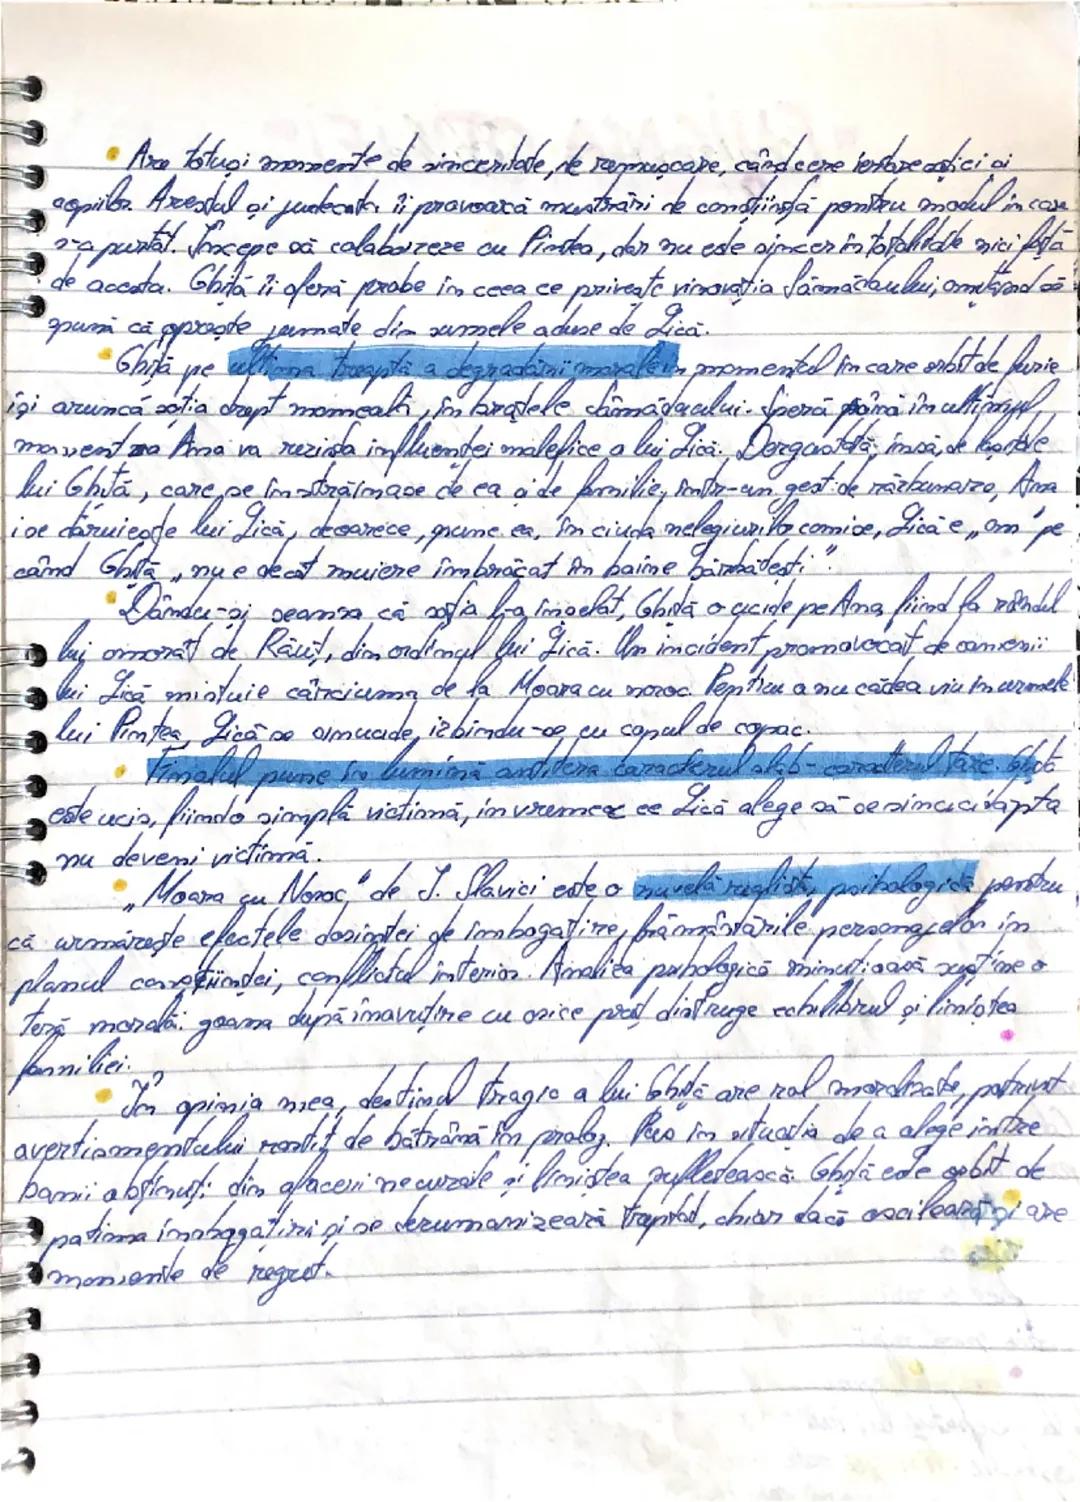 Are totuși momente de sinceritate, de remușcare, când cere iertare soției și
copiilor. Arestul și judecata îi provoacă mustrări de conștiință pentru modul în care
s-a purtat. Începe să colaboreze cu Pintea, dar nu este sincer în totalitate nici față
de acesta. Ghiță îi oferă probe în ceea ce privește vinovăția Sămădăului, omițând să
spună că oprește jumate din sumele aduse de Lică.
Ghiță pe ultima treaptă a degradării morale în momentul în care orbit de furie
își aruncă soția drept momeală, în brațele Sămădăului. Speră până în ultimul
moment ca Ana va rezista influenței malefice a lui Lică. Dezgustată, însă, de lașitate
lui Ghiță, care se înstrăinase de ea și de familie, într-un gest de răzbunare, Ana
i se dăruiește lui Lică, deoarece, spune ea, în ciuda nelegiurilor comise, Lică e „om" pe
când Ghiță „nu e decât muiere îmbrăcat în haine bărbătești".
Dându-și seama că soția l-a înșelat, Ghiță o ucide pe Ana, fiind la rândul
lui omorât de Răuț, din ordinul lui Lică. Un incident promovocat de oamenii
lui Lică mistuie cârciuma de la Moara cu noroc. Pentru a nu cădea viu în urmele
lui Pintea, Lică se sinucide, izbindu-se cu capul de copac.
Finalul pune în lumină antiteza caracterul slab - caracterul tare. Ghiță
este ucis, fiind o simplă victimă, în vreme ce Lică alege să se sinucidă pta
nu deveni victimă.
„Moara cu Noroc" de I. Slavici este o nuvelă realistă, psihologică pentru
că urmărește efectele dorinței de îmbogățire, frământările personajelor în
planul conștiinței, conflictul interior. Analiza psihologică minuțioasă susține o
teză morală: goana după înavuțire cu orice preț distruge echilibrul și liniștea
familiei.
În opinia mea, destinul tragic a lui Ghiță are rol moralizator, potrivit
avertismentului rostit de bătrână în prolog. Pus în situația de a alege între
banii obținuți din afaceri necurate și liniștea sufletească. Ghiță este orbit de
patima îmbogățirii și se dezumanizează treptat, chiar dacă oscilează și are
momente de regret.